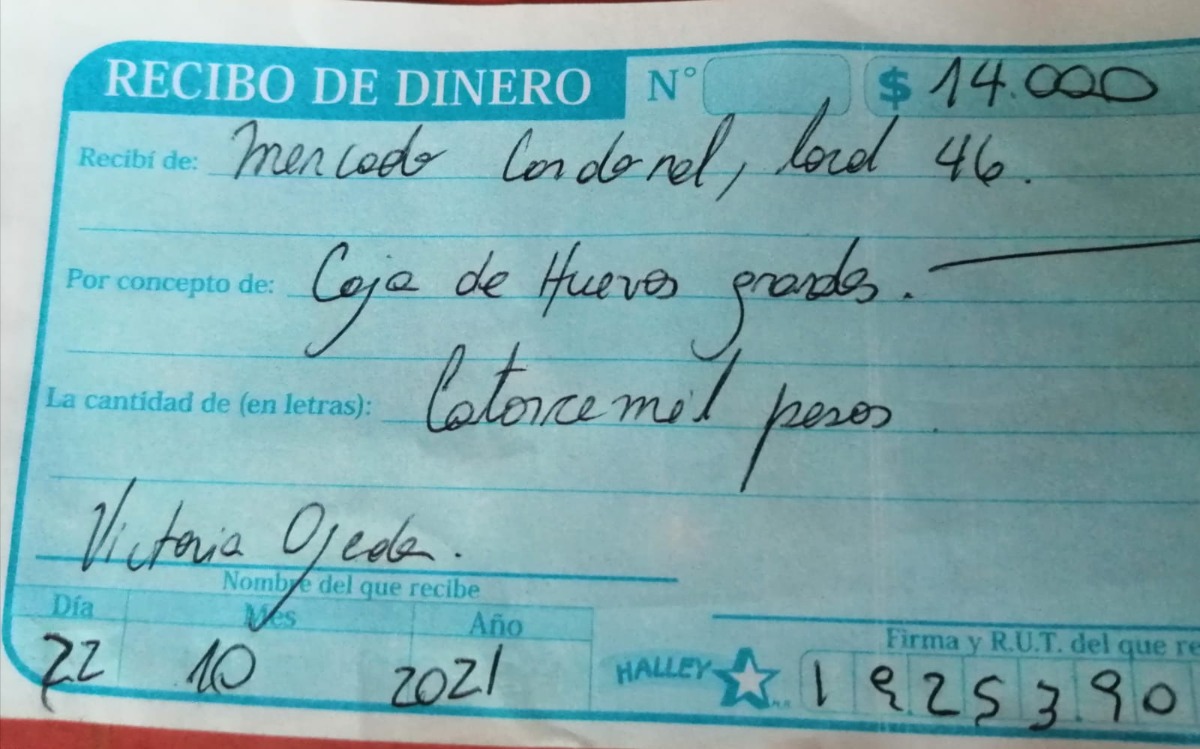 RECIBO DE DINERO N° $ 14.000
Recibí de: Mercado Cardonal, local 46.
Por concepto de: Caja de Huevos grandes.
La cantidad de (en letras): Catorce mil pesos
Victoria Ojeda.
Nombre del que recibe
Día Mes Año
22 10 2021
Firma y R.U.T. del que re
HALLEY 1 9.253.90